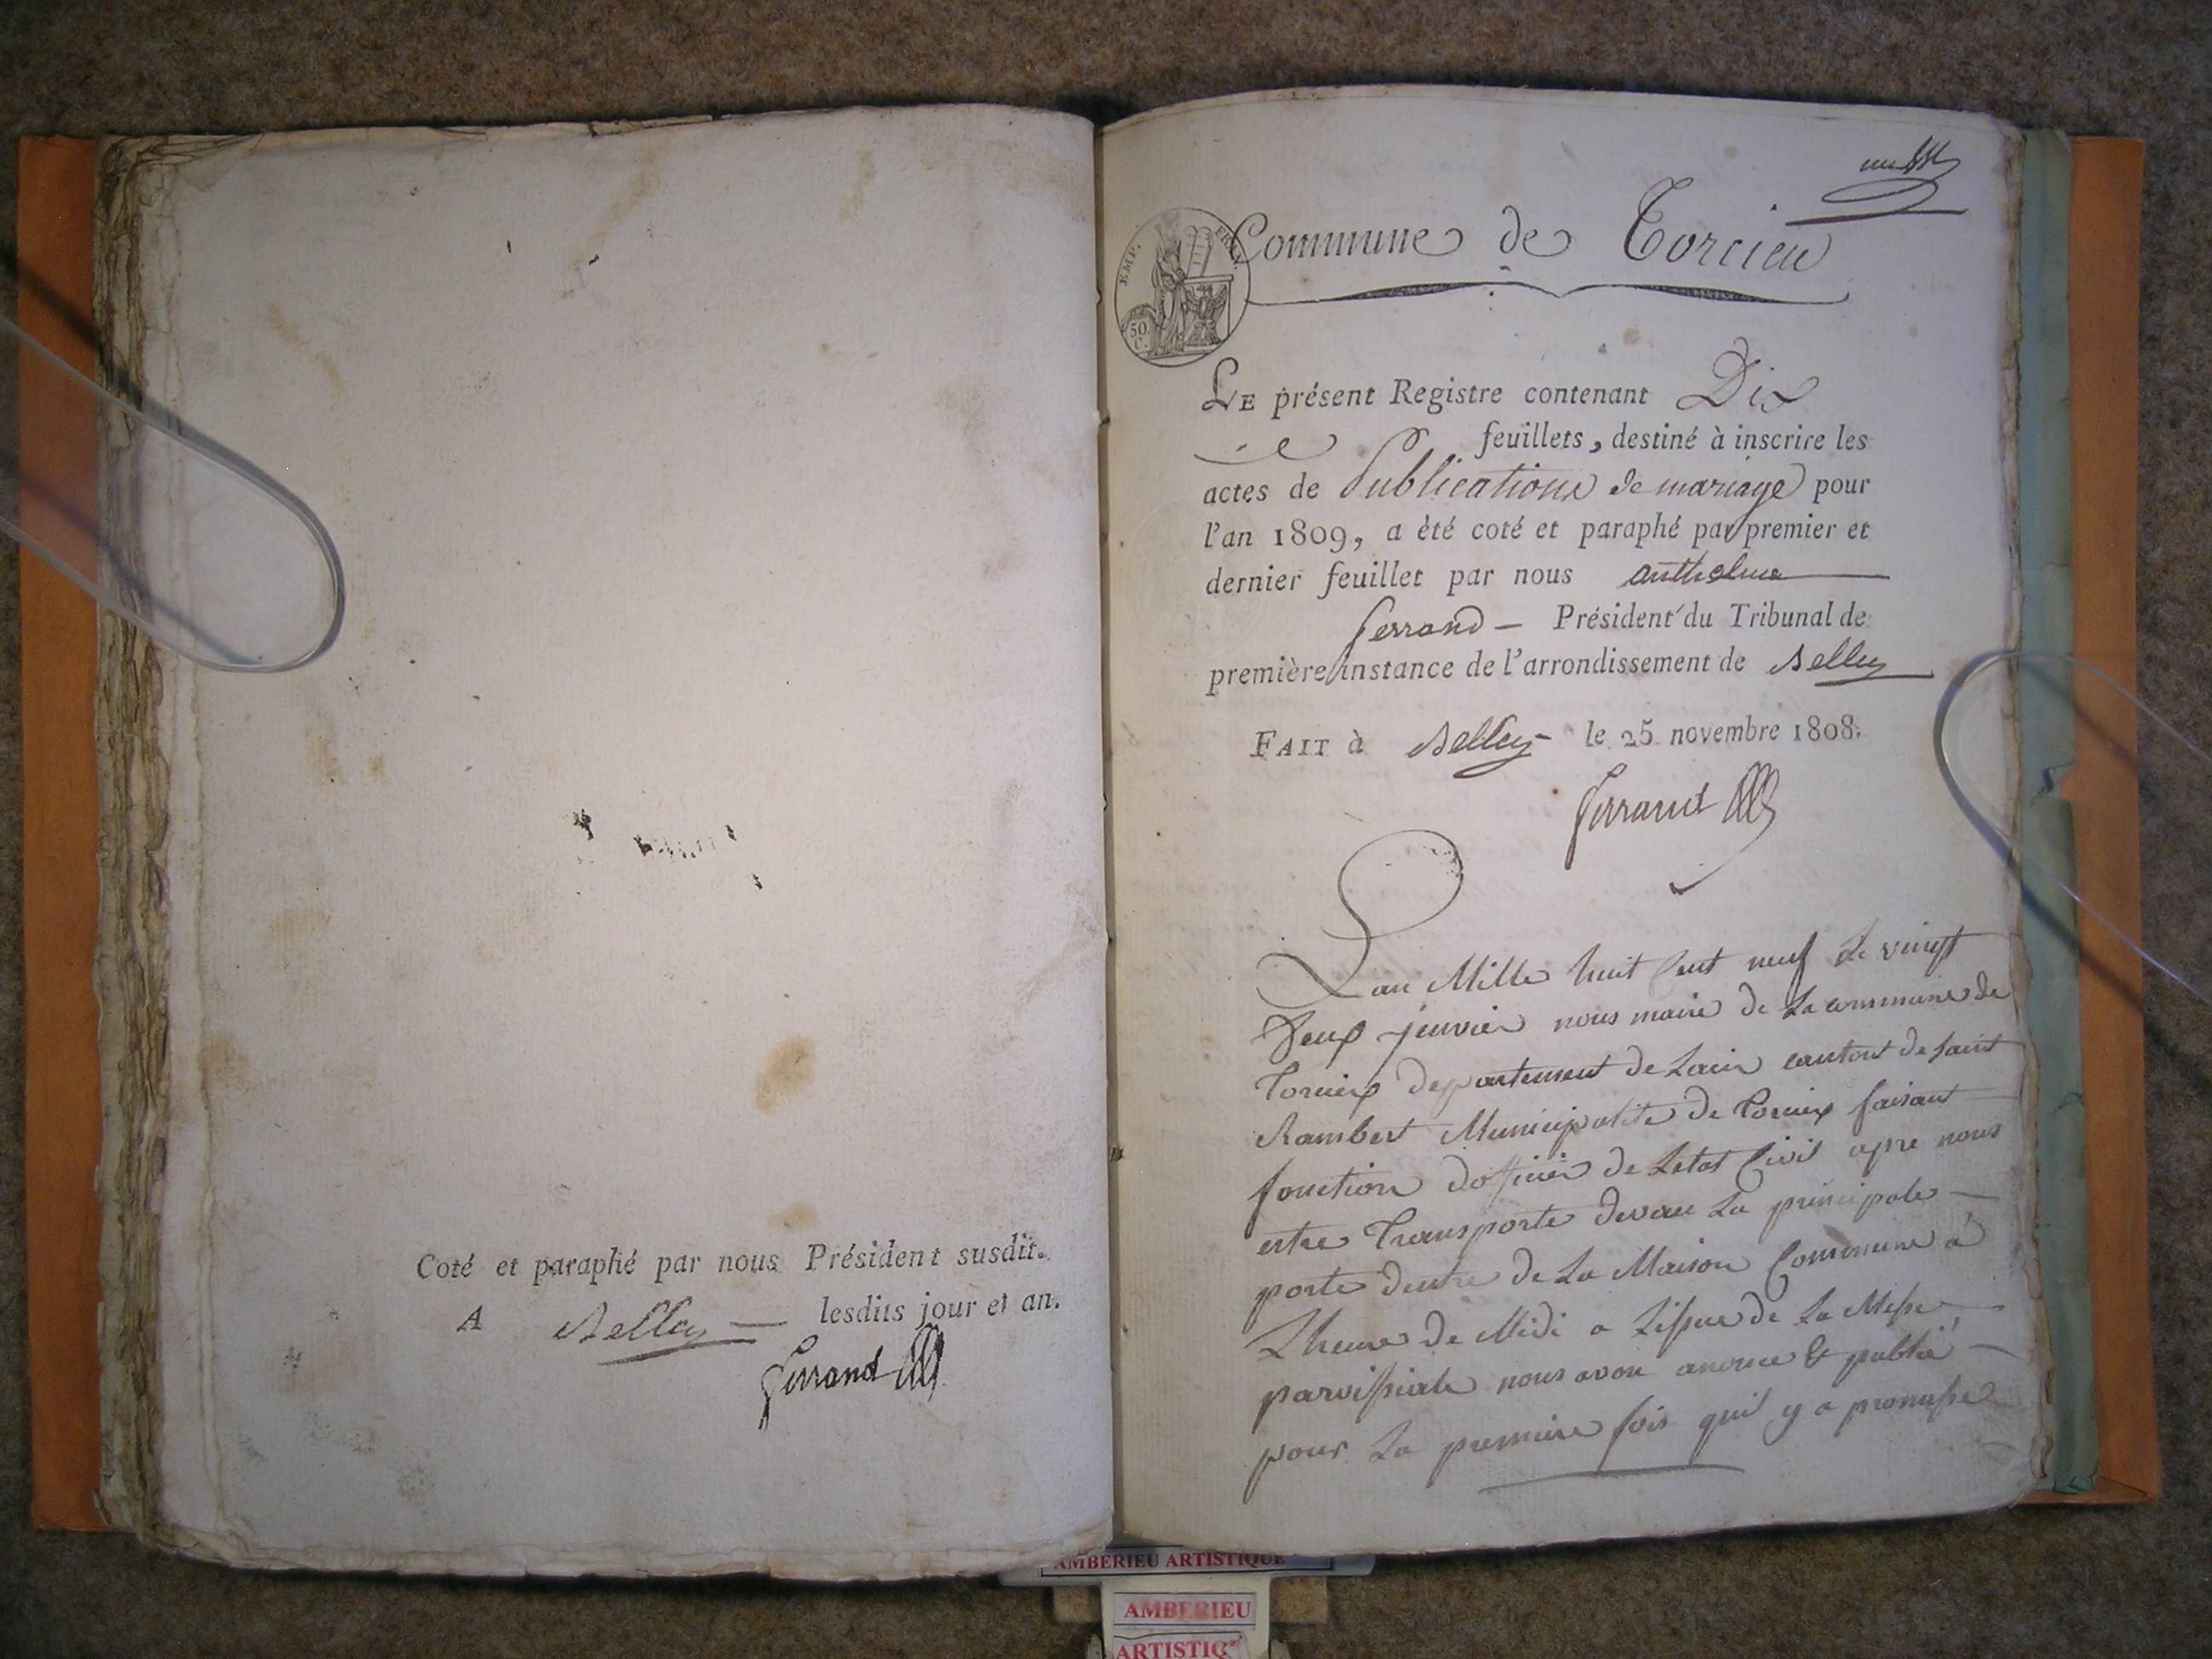 Coté et paraphé par nous Président susdit.
A Belley lesdits jour et an.
Ferrand
Commune de Torcieu
EMP. FRAN.
50 C.
LE présent Registre contenant Dix
feuillets, destiné à inscrire les
actes de Publications de mariage pour
l'an 1809, a été coté et paraphé par premier et
dernier feuillet par nous anthelme
ferrand — Président du Tribunal de
première instance de l'arrondissement de Belley
FAIT à Belley le 25 novembre 1808.
Ferrand
Lan Mille huit Cent neuf Le vingt
Deux janvier nous maire de La commune de
Torcieux departement de Lain canton de saint
Rambert Municipalite de Torcieux faisant
fonction dofficier de Letat Civil apre nous
estre Transporte devau La principale
porte dentre de La Maison Commune a
Lheure de Midi a Lissue de La Messe
paroissiale nous avon anonce & publié
pour La premiere fois quil y a promesse
AMBERIEU ARTISTIQUE
AMBERIEU
ARTISTIQ